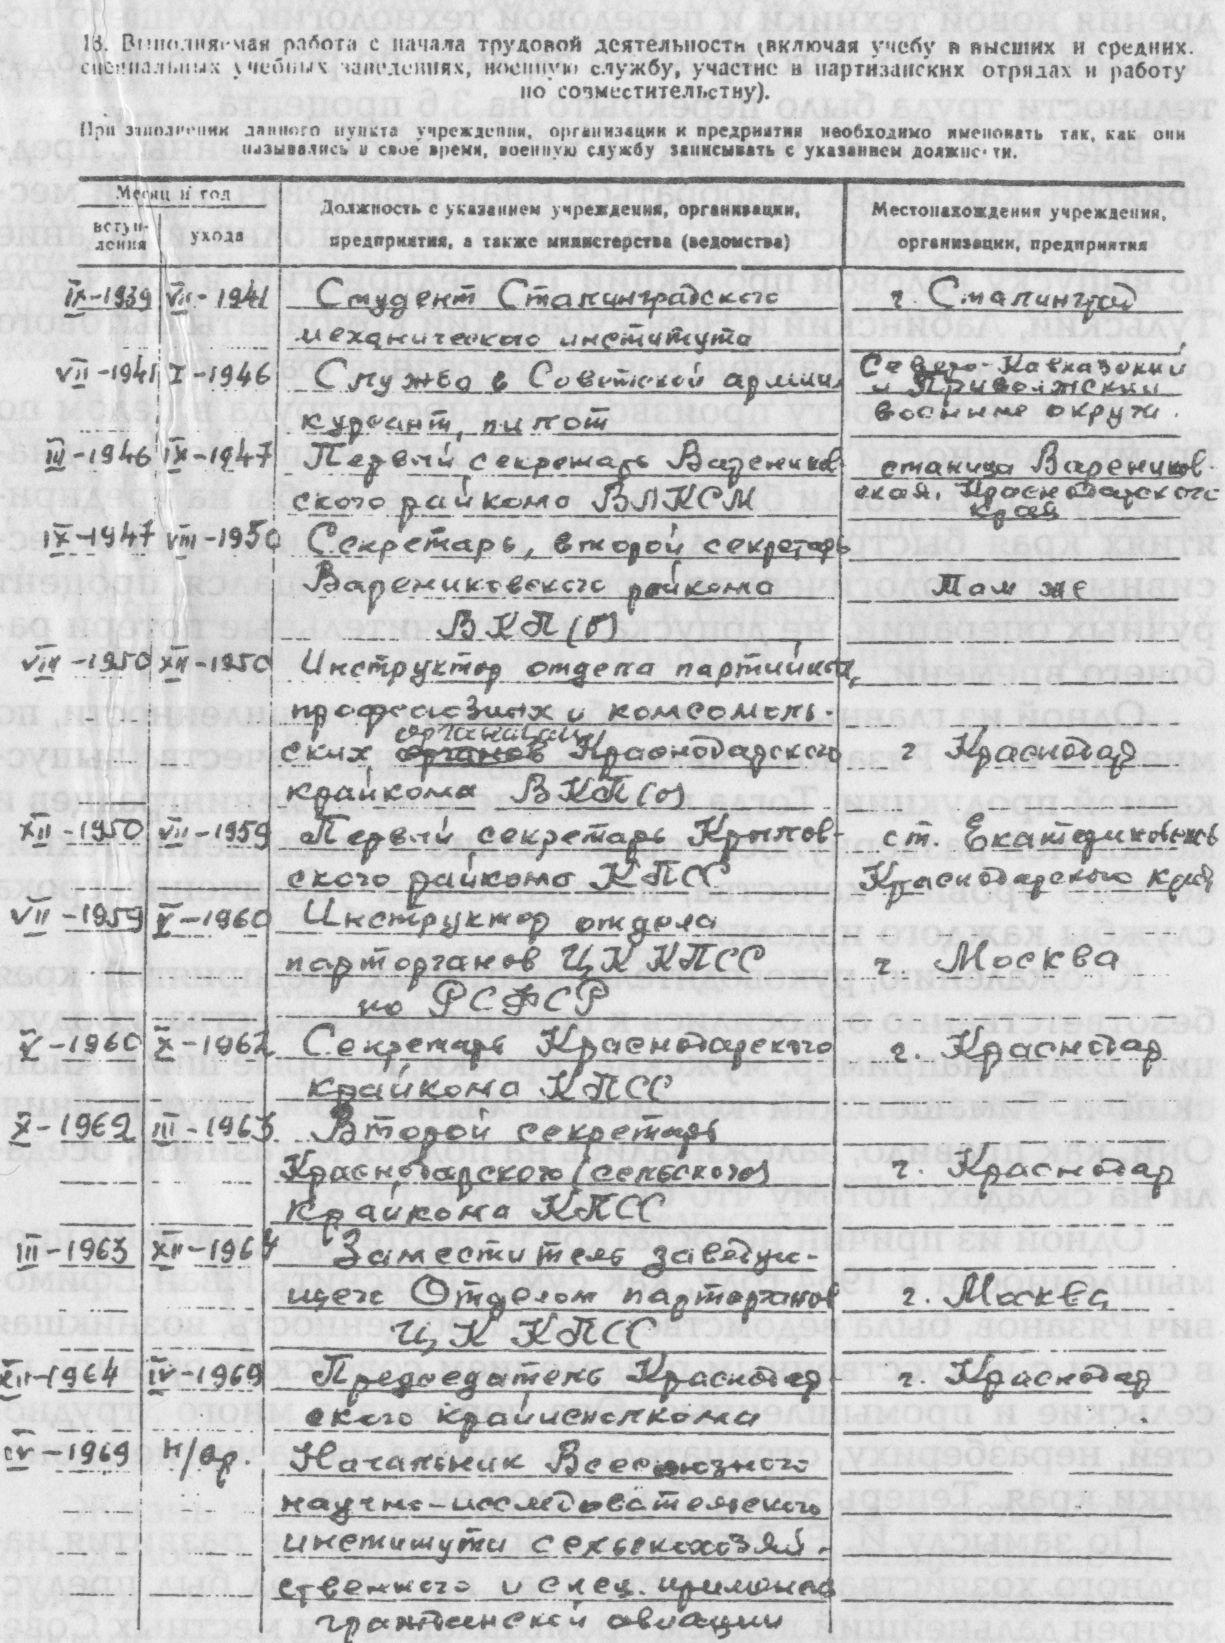 13. Выполняемая работа с начала трудовой деятельности (включая учебу в высших и средних.
специальных учебных заведениях, военную службу, участие в партизанских отрядах и работу
по совместительству).
При заполнении данного пункта учреждения, организации и предприятия необходимо именовать так, как они
назывались в свое время, военную службу записывать с указанием должности.
Месяц и год
вступ-
ления
ухода
Должность с указанием учреждения, организации,
предприятия, а также министерства (ведомства)
Местонахождения учреждения,
организации, предприятия
IX-1939 VII-1941 Студент Сталинградского г. Сталинград
механического института
VII-1941 I-1946 Служба в Советской армии Северо-Кавказский
и Приволжский
курсант, пилот военные округа.
III-1946 IX-1947 Первый секретарь Вареников- станица Вареников-
ского райкома ВЛКСМ ская, Краснодарского
края
IX-1947 VIII-1950 Секретарь, второй секретарь
Варениковского райкома Там же
ВКП(б)
VIII-1950 XII-1950 Инструктор отдела партийных,
профсоюзных и комсомоль-
организаций
ских органов Краснодарского г Краснодар
крайкома ВКП(б)
XII-1950 VII-1959 Первый секретарь Крылов- ст. Екатериновская
ского райкома КПСС Краснодарского края
VII-1959 V-1960 Инструктор отдела
парторганов ЦК КПСС г Москва
по РСФСР
V-1960 X-1962 Секретарь Краснодарского г. Краснодар
крайкома КПСС
X-1962 III-1963 Второй секретарь
Краснодарского (сельского) г. Краснодар
крайкома КПСС
III-1963 XII-1964 Заместитель заведую-
щего Отделом парторганов г. Москва
ЦК КПСС
XII-1964 IV-1969 Председатель Краснодар г. Краснодар
ского крайисполкома
IV-1969 н/вр. Начальник Всесоюзного
научно-исследовательского
института сельскохозяй-
ственного и спец. применения
гражданской авиации